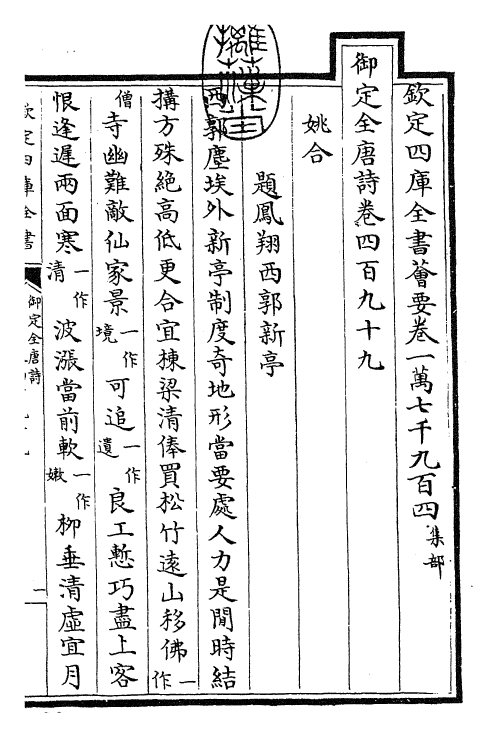 欽定四庫全書薈要卷一萬七千九百四 集部
御定全唐詩卷四百九十九
姚合
題鳳翔西郭新亭
西郭塵埃外新亭制度奇地形當要處人力是閒時結
搆方殊絶高低更合宜棟梁清俸買松竹逺山移佛一作
僧寺幽難敵仙家景一作境可追一作遺良工慙巧盡上客
恨逢遲兩面寒一作清波漲當前軟一作嫩柳垂清虛宜月
欽定四庫全書
御定全唐詩
一